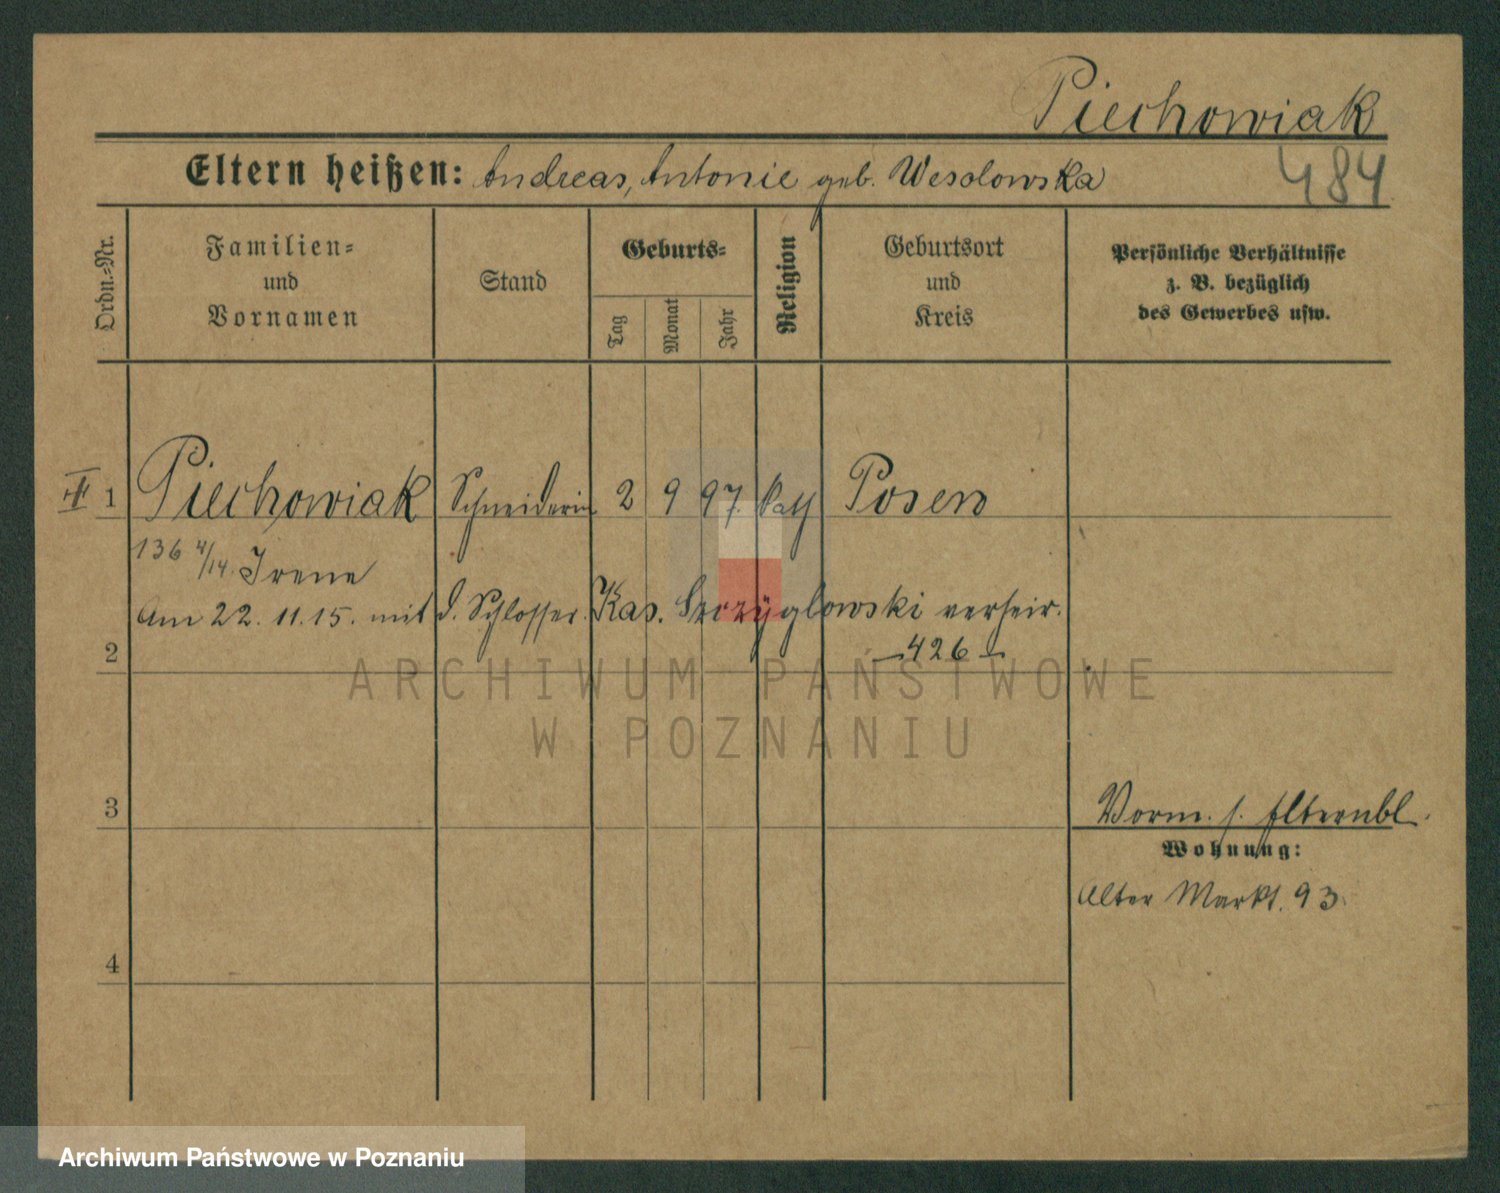 Piechowiak
Eltern heißen: Andreas, Antonie geb. Wesolowska
484
Ordn.=Nr.
Familien=
und
Vornamen
Stand
Geburts=
Tag
Monat
Jahr
Religion
Geburtsort
und
Kreis
Persönliche Verhältnisse
z. B. bezüglich
des Gewerbes usw.
II 1 Piechowiak Schneiderin 2 9 97. kath Posen
136 4/14. Irene
Am 22. 11. 15. mit d. Schlosser. Kas. Szczyglowski verheir.
2 — 426 —
ARCHIWUM PAŃSTWOWE
W POZNANIU
3
Vorm. s. Elternbl.
Wohnung:
Alter Markt. 93.
4
Archiwum Państwowe w Poznaniu